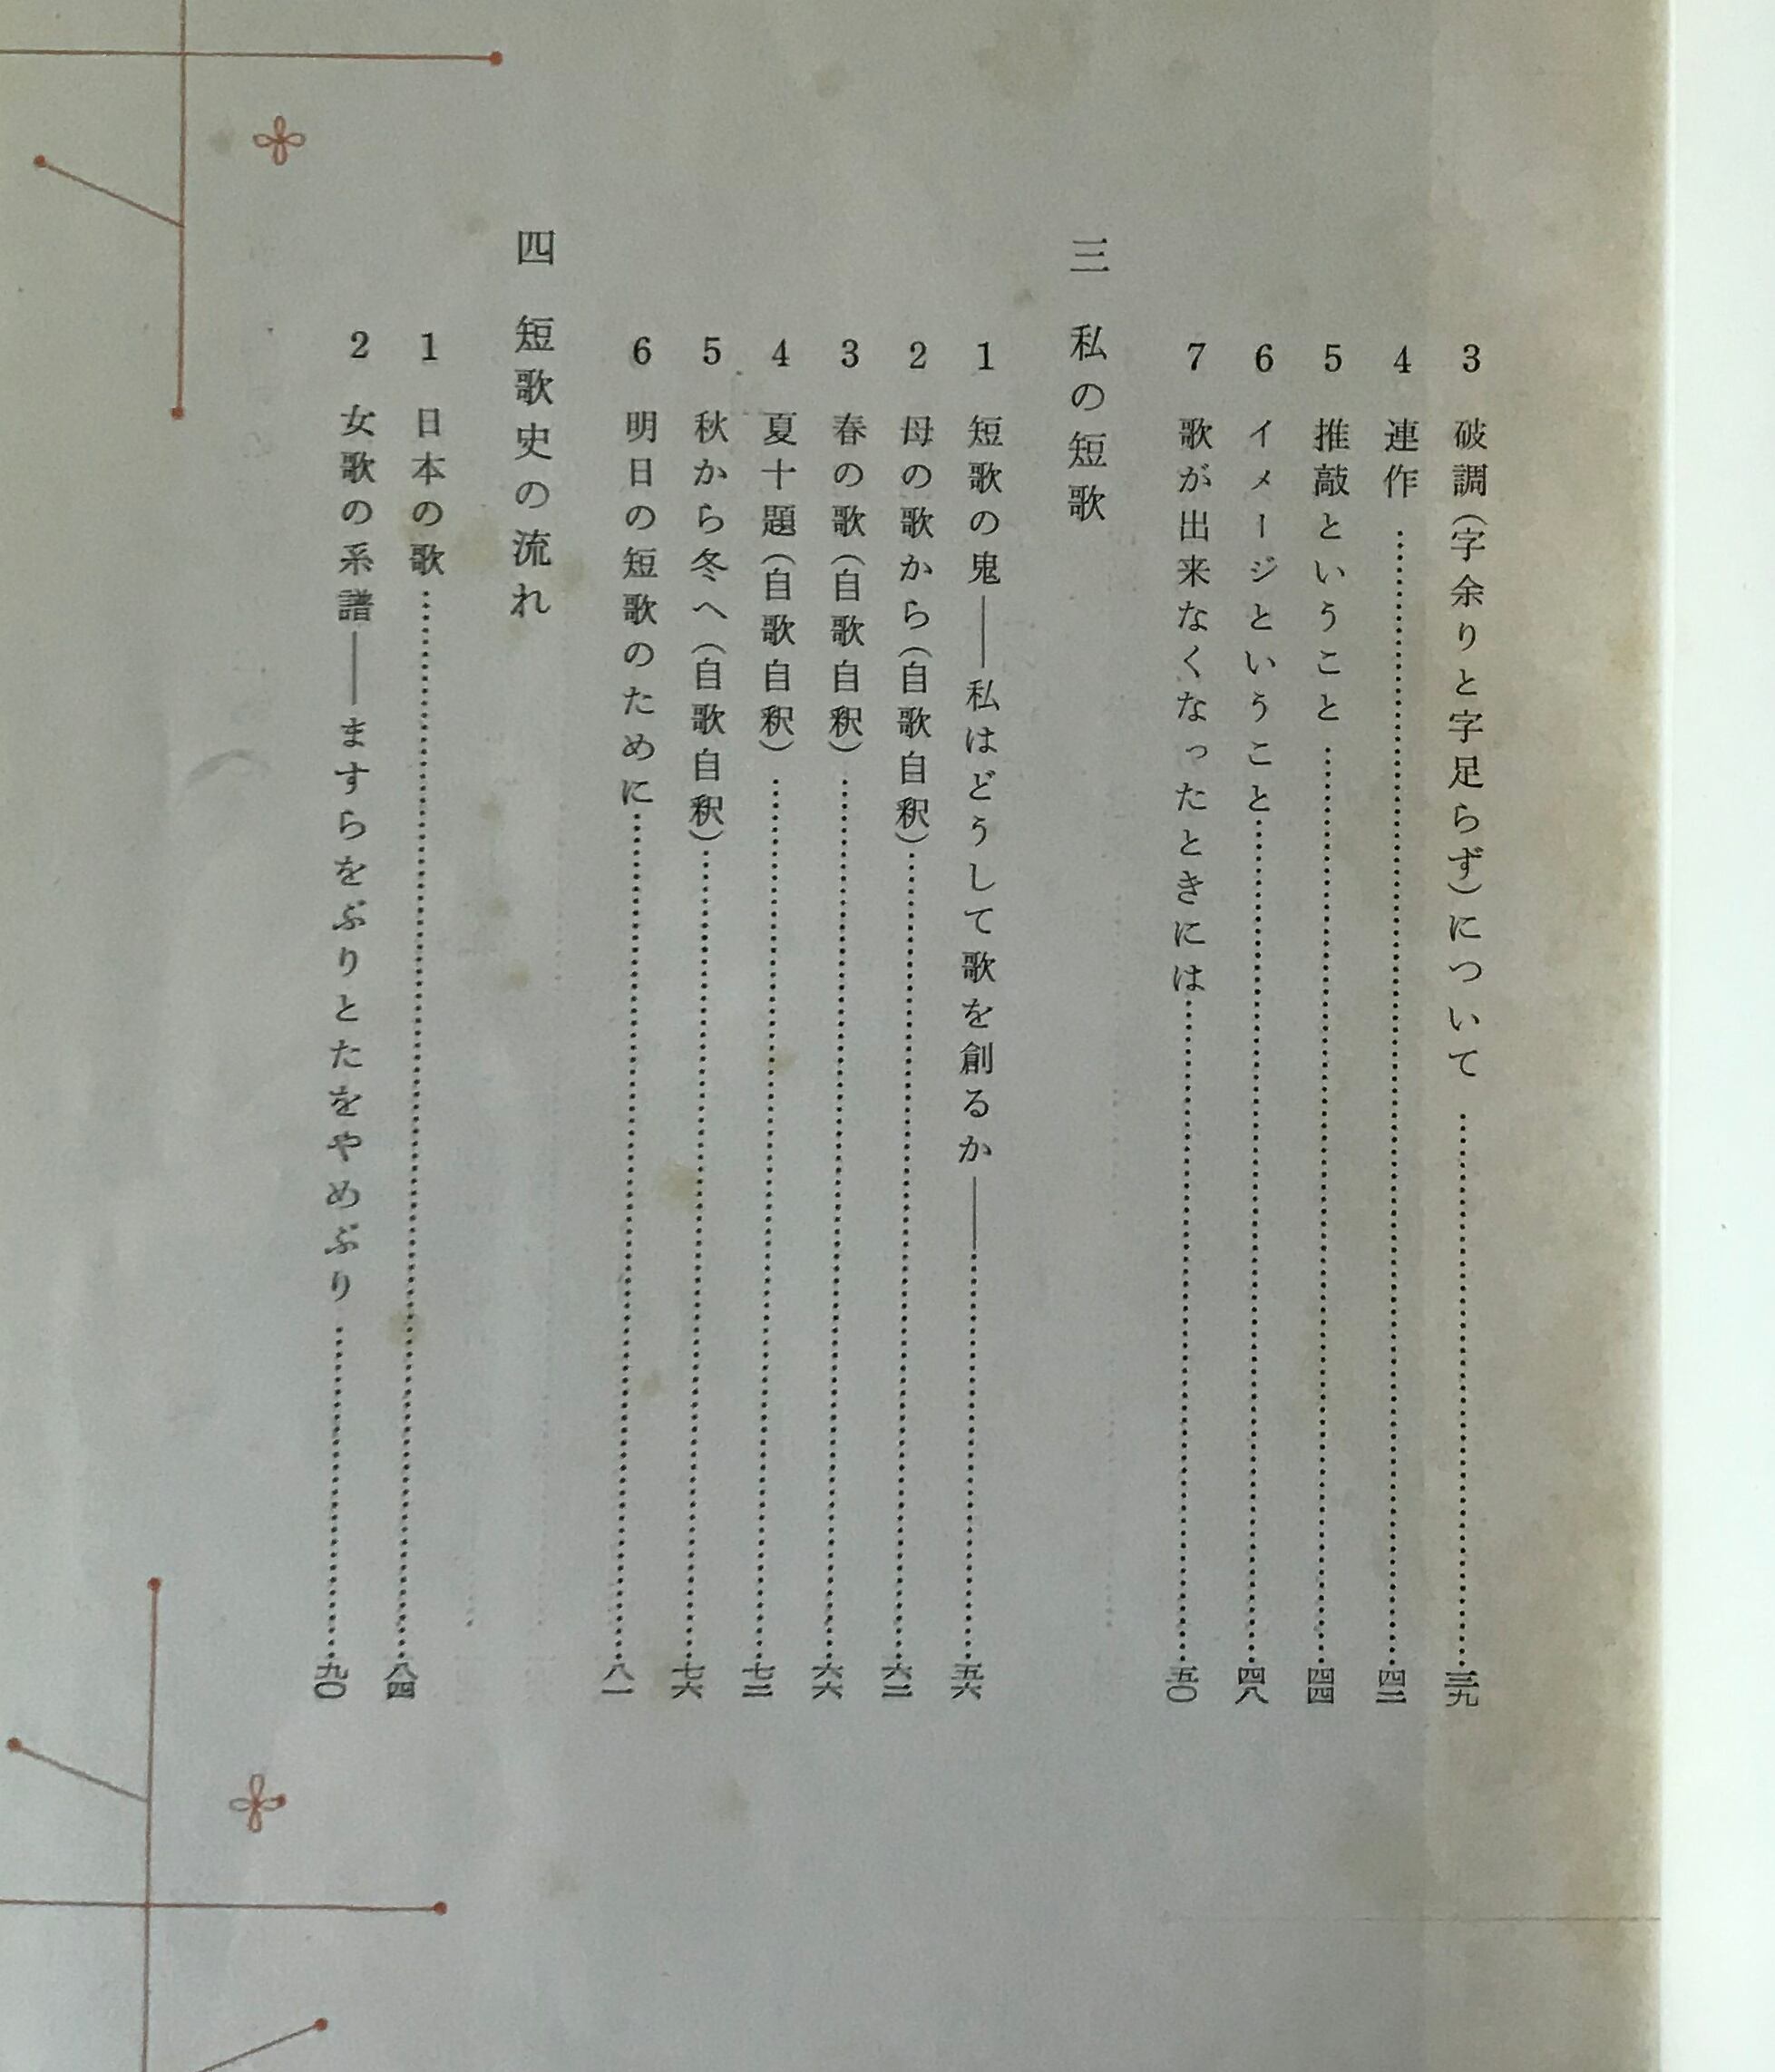 3 破調（字余りと字足らず）について……三九
4 連作……四二
5 推敲ということ……四四
6 イメージということ……四八
7 歌が出来なくなったときには……五〇
三 私の短歌
1 短歌の鬼――私はどうして歌を創るか――……五六
2 母の歌から（自歌自釈）……六二
3 春の歌（自歌自釈）……六六
4 夏十題（自歌自釈）……七二
5 秋から冬へ（自歌自釈）……七六
6 明日の短歌のために……八一
四 短歌史の流れ
1 日本の歌……八四
2 女歌の系譜――ますらをぶりとたをやめぶり……九〇